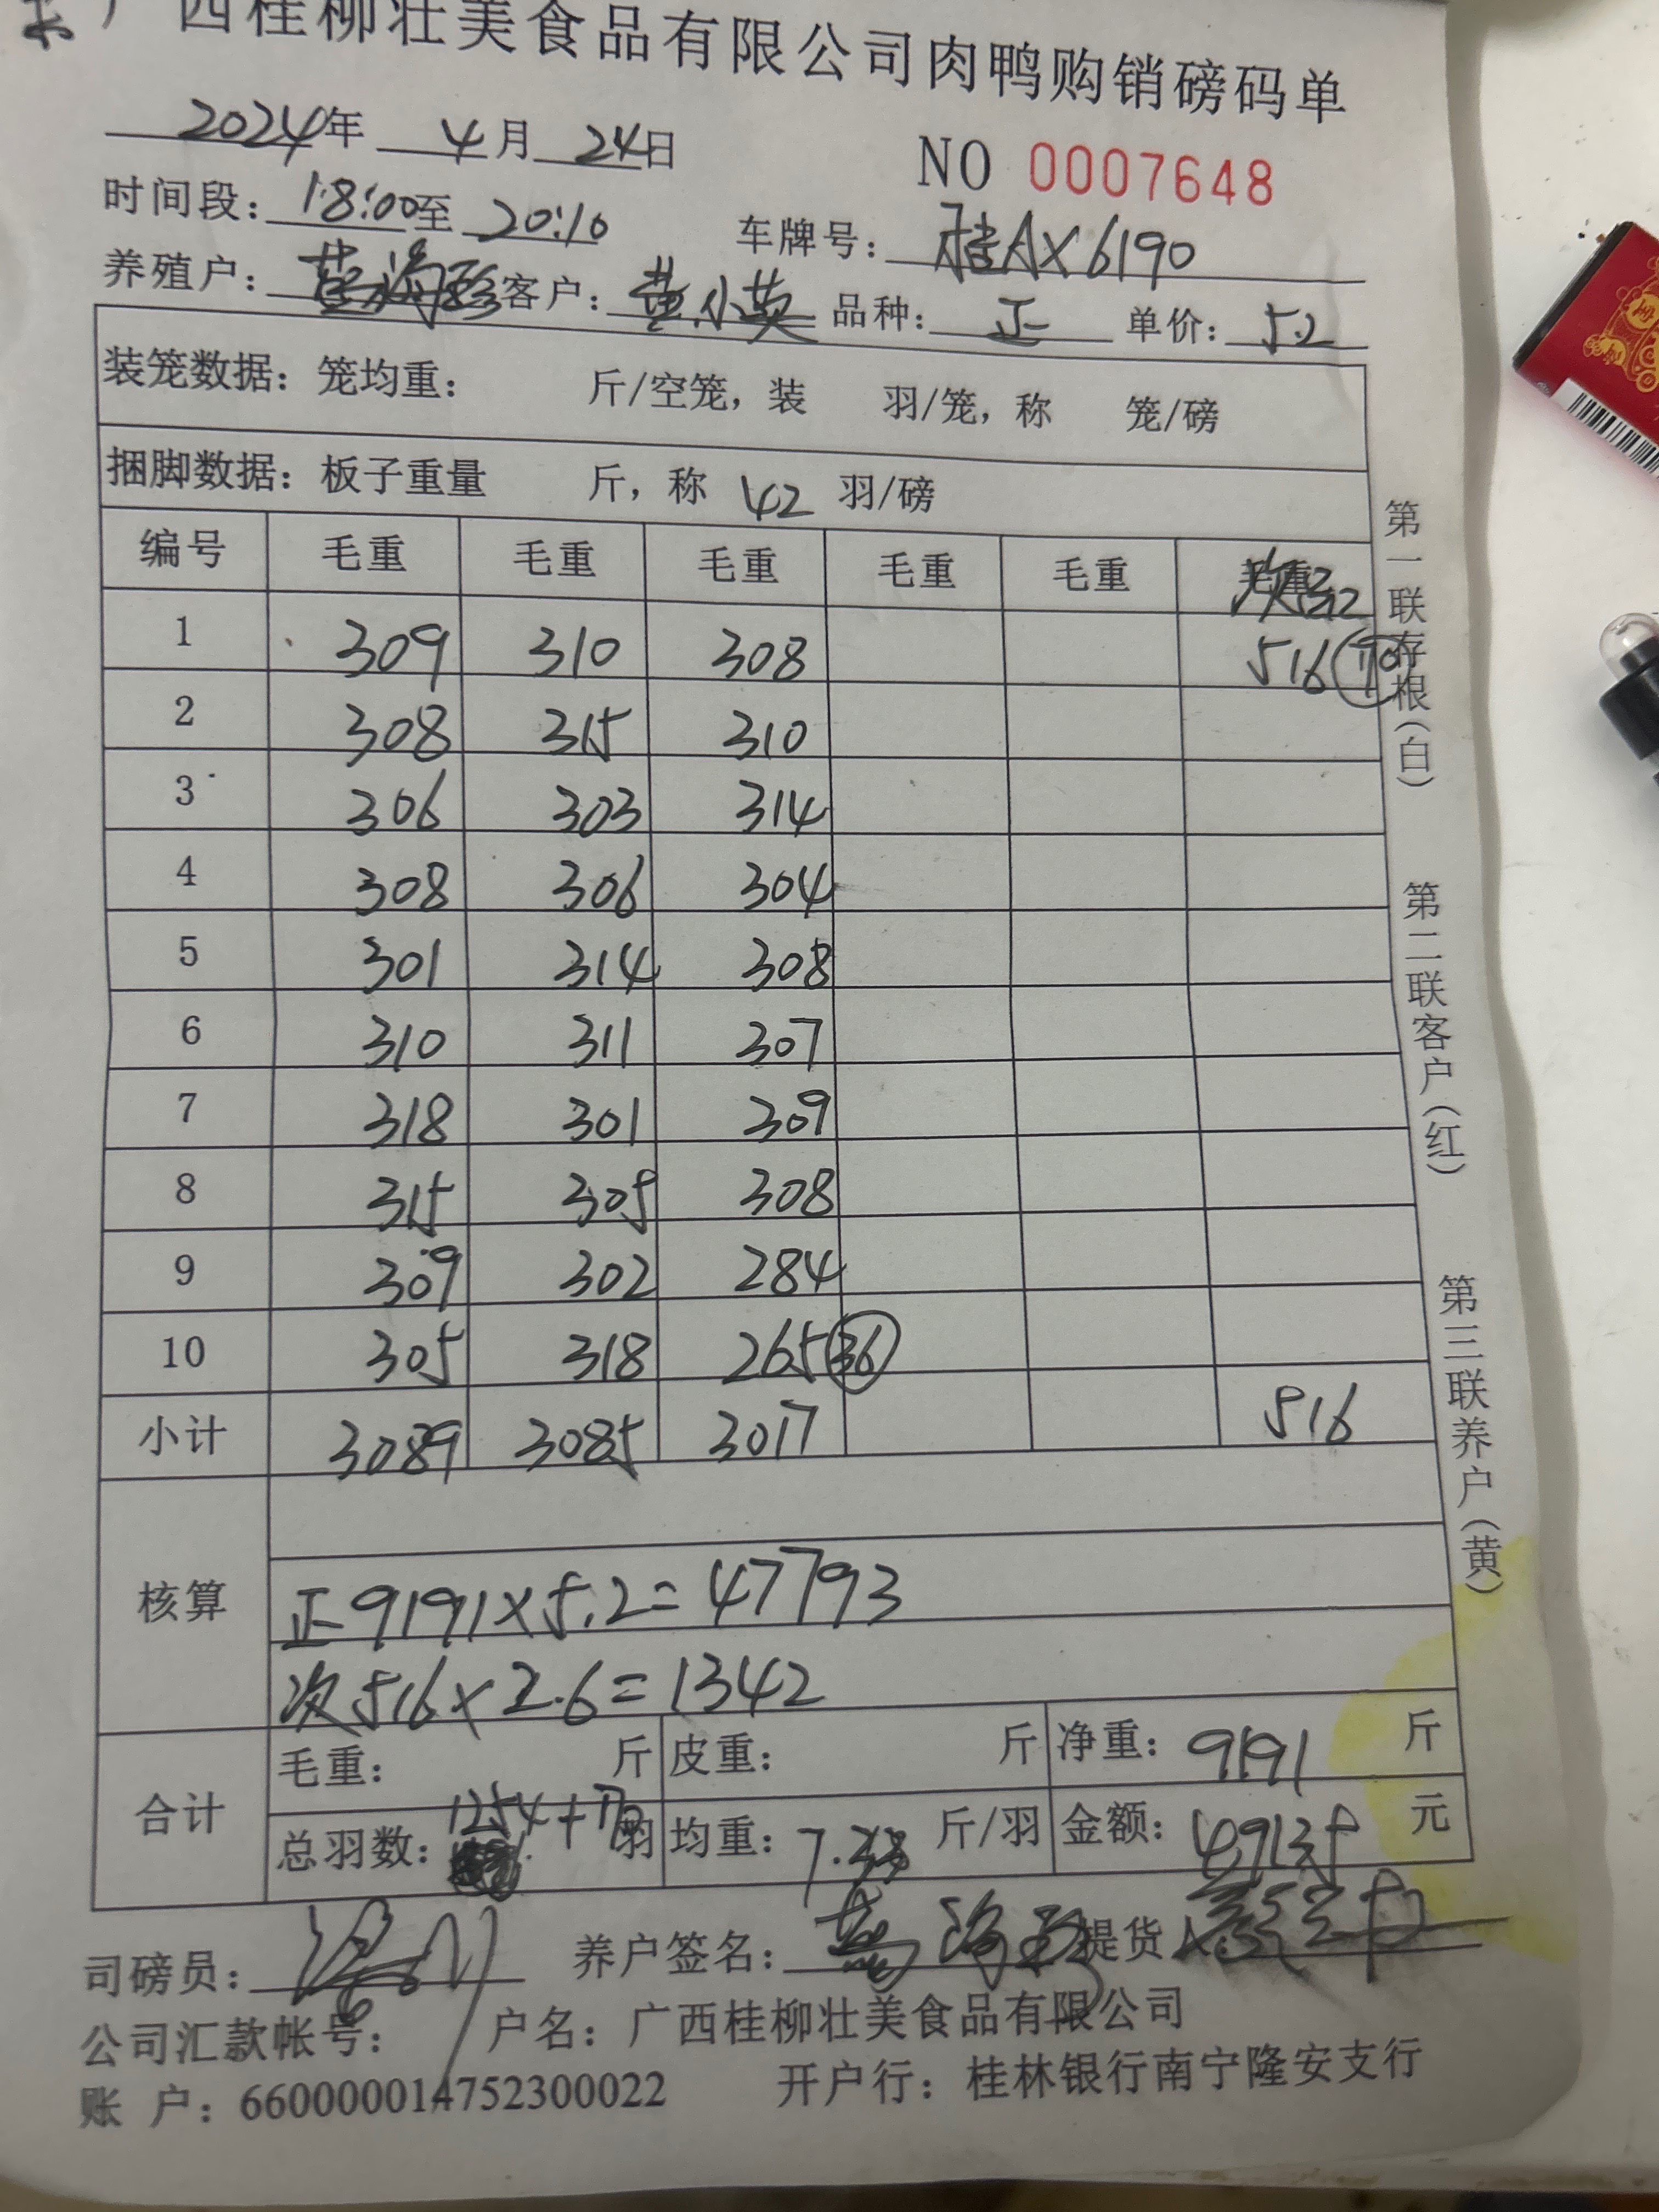 广西桂柳壮美食品有限公司肉鸭购销磅码单
2024年 4月 24日
NO 0007648
时间段: 18:00至 20:10 车牌号: 桂AX6190
养殖户: 客户: 黄小英 品种: 正 单价: 5.2
装笼数据: 笼均重: 斤/空笼, 装 羽/笼, 称 笼/磅
捆脚数据: 板子重量 斤, 称 42 羽/磅
编号 毛重 毛重 毛重 毛重 毛重
1 309 310 308 516
2 308 315 310
3 306 303 314
4 308 306 304
5 301 314 308
6 310 311 307
7 318 301 309
8 315 305 308
9 309 302 284
10 305 318 265 36
小计 3089 3085 3017 516
核算
正9191×5.2=47793
次516×2.6=1342
合计
毛重: 斤 皮重: 斤 净重: 9191 斤
总羽数: 1254+ 羽 均重: 7.33 斤/羽 金额: 49135 元
司磅员: 养户签名: 提货
公司汇款帐号: 户名: 广西桂柳壮美食品有限公司
账 户: 660000014752300022 开户行: 桂林银行南宁隆安支行
第一联存根(白)
第二联客户(红)
第三联养户(黄)